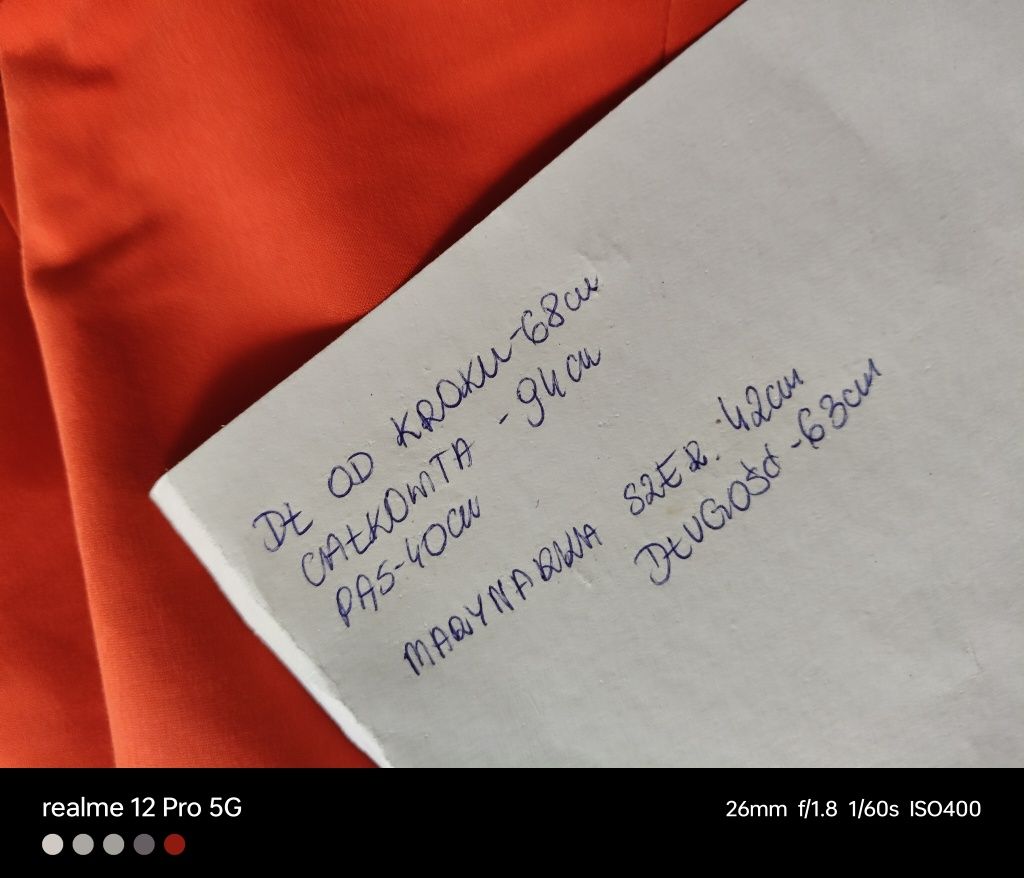 DŁ OD KROKU-68cm
CAŁKOWITA -94cm
PAS-40cm
MARYNARKA SZER. 42cm
DŁUGOŚĆ -63cm
realme 12 Pro 5G
26mm f/1.8 1/60s ISO400